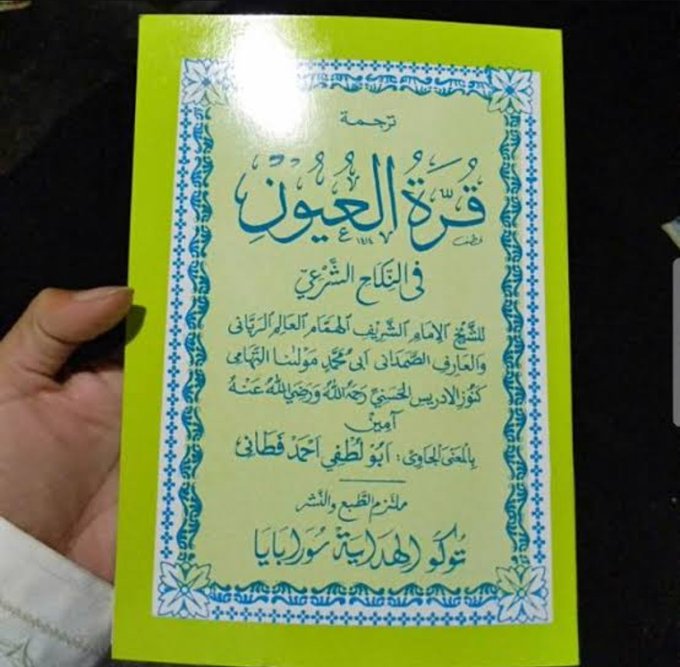 ترجمة
قُرَّةُ الْعُيُوْنِ
فى النكاح الشَّرْعِيّ
للشَّيْخِ الإمام الشريف الهمام العالم الربانى
والعارف الصمدانى ابى محمد مولٰنا التهامى
كنوز الادريس الحسني رحمه الله ورضي الله عنه
آمين
بالمعنى الجاوى: ابو لطفي احمد فطانى
ملتزم الطبع والنشر
توكو الهداية سورابايا